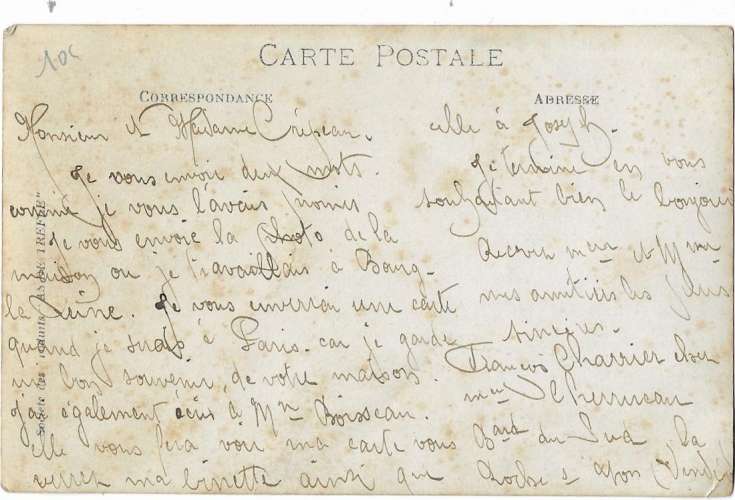 10c
CARTE POSTALE
CORRESPONDANCE
Monsieur et Madame Crépeau.
Je vous envoie deux mots.
comme je vous l'avais promis
Je vous envoie la photo de la
maison ou je travaillais à Bourg-
la Reine. Je vous enverrai une carte
quand je serais à Paris. car je garde
un bon souvenir de votre maison.
J'ai également écris à Mm Boisseau.
elle vous fera voir ma carte vous
verrez ma binette ainsi que
ADRESSE
celle à Joseph.
Je termine en vous
souhaitant bien le bonjour
Recevez mesur et Mme
mes amitiés les plus
sincères.
François Charrier chez
mesur
Bard du Sud la
Roche s Yon (Vendée)
Société des "AS DE TREFLE"